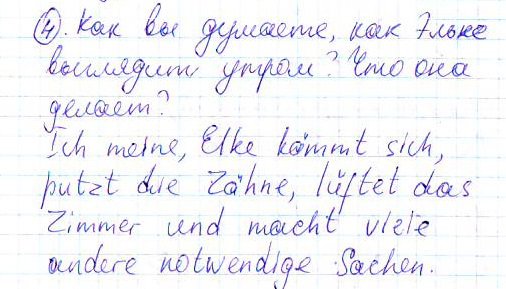 4. Как вы думаете, как Эльке
выглядит утром? Что она
делает?
Ich meine, Elke kämmt sich,
putzt die Zähne, lüftet das
Zimmer und macht viele
andere notwendige Sachen.